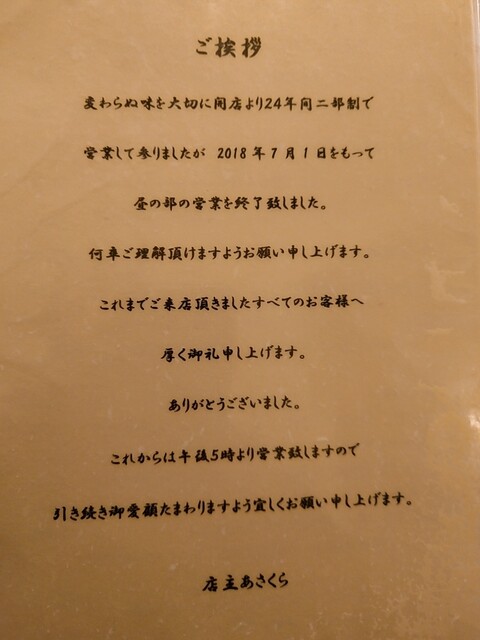 ご挨拶
変わらぬ味を大切に開店より24年間二部制で
営業して参りましたが 2018年7月1日をもって
昼の部の営業を終了致しました。
何卒ご理解頂けますようお願い申し上げます。
これまでご来店頂きましたすべてのお客様へ
厚く御礼申し上げます。
ありがとうございました。
これからは午後5時より営業致しますので
引き続き御愛顧たまわりますよう宜しくお願い申し上げます。
店主あさくら